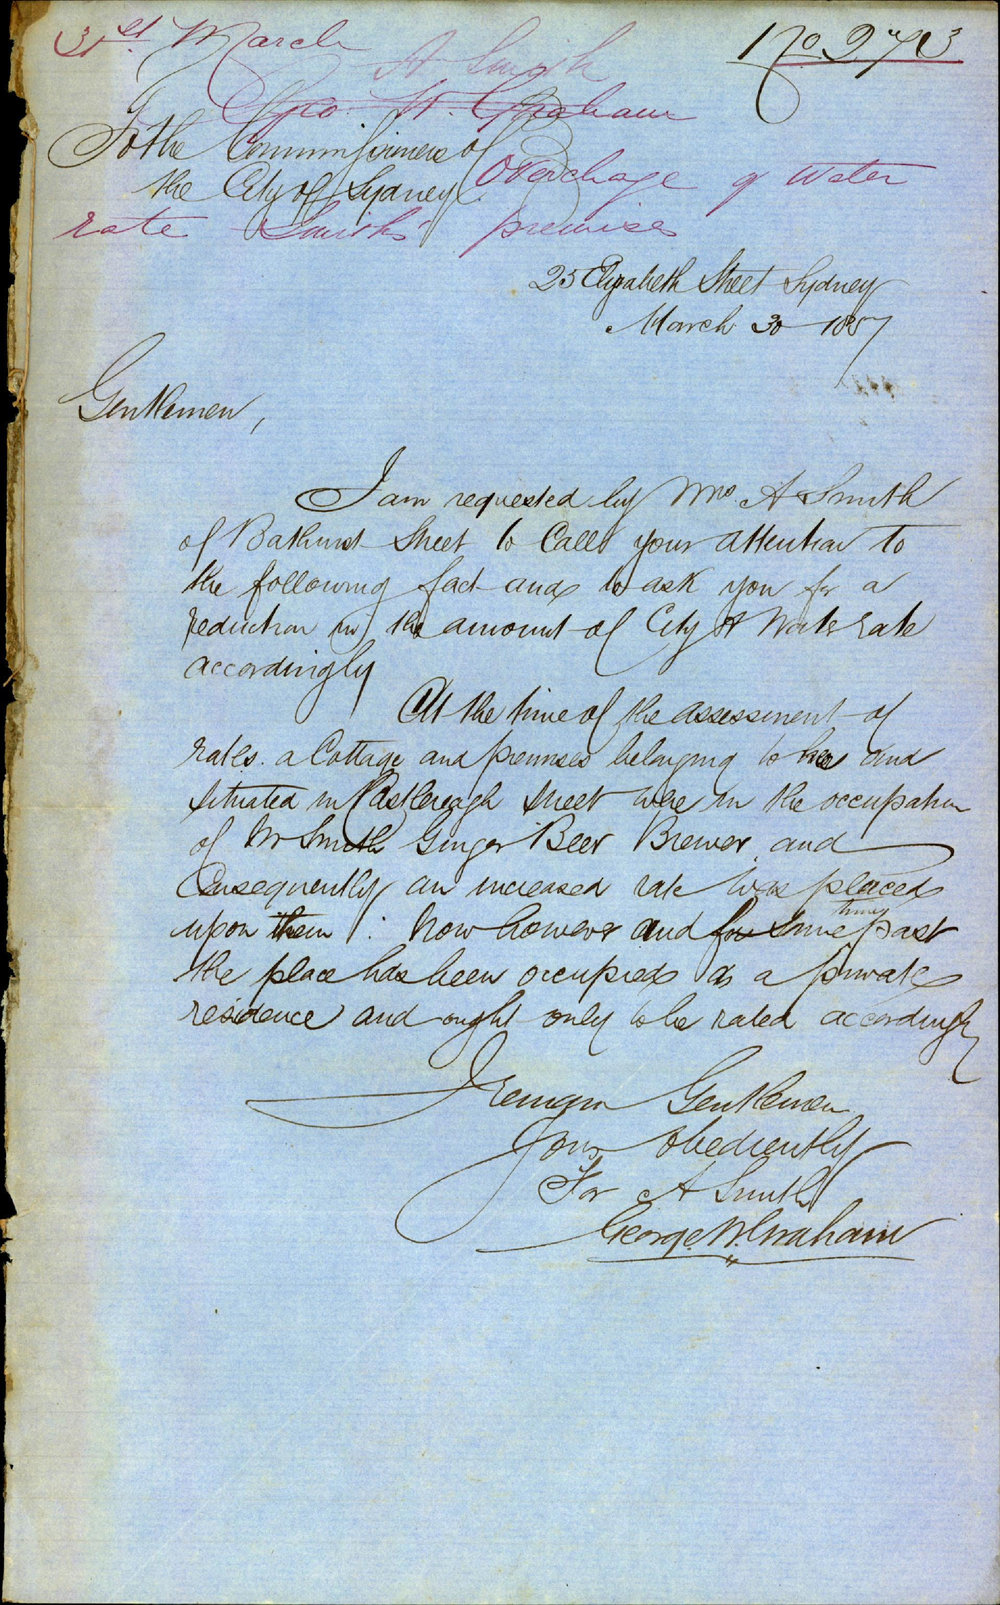 31st March
No 273
A Smith
Geo. W. Graham
To the Commissioners of
the City of Sydney
Overchage of Water
rate Smith's premises
25 Elizabeth Street Sydney
March 30 1857
Gentlemen,
I am requested by Mrs A Smith
of Bathurst Street to Call your attention to
the following fact and to ask you for a
reduction in the amount of City & Water rate
accordingly
At the time of the assessment of
rates. a Cottage and premises belonging to her and
situated in Castlereagh Street were in the occupation
of Mr Smith Ginger Beer Brewer and
Consequently an increased rate was placed
upon them: Now however and for some time past
the place has been occupied as a private
residence and ought only to be rated accordingly
I remain Gentlemen
Yours obediently
For A Smith
George W. Graham